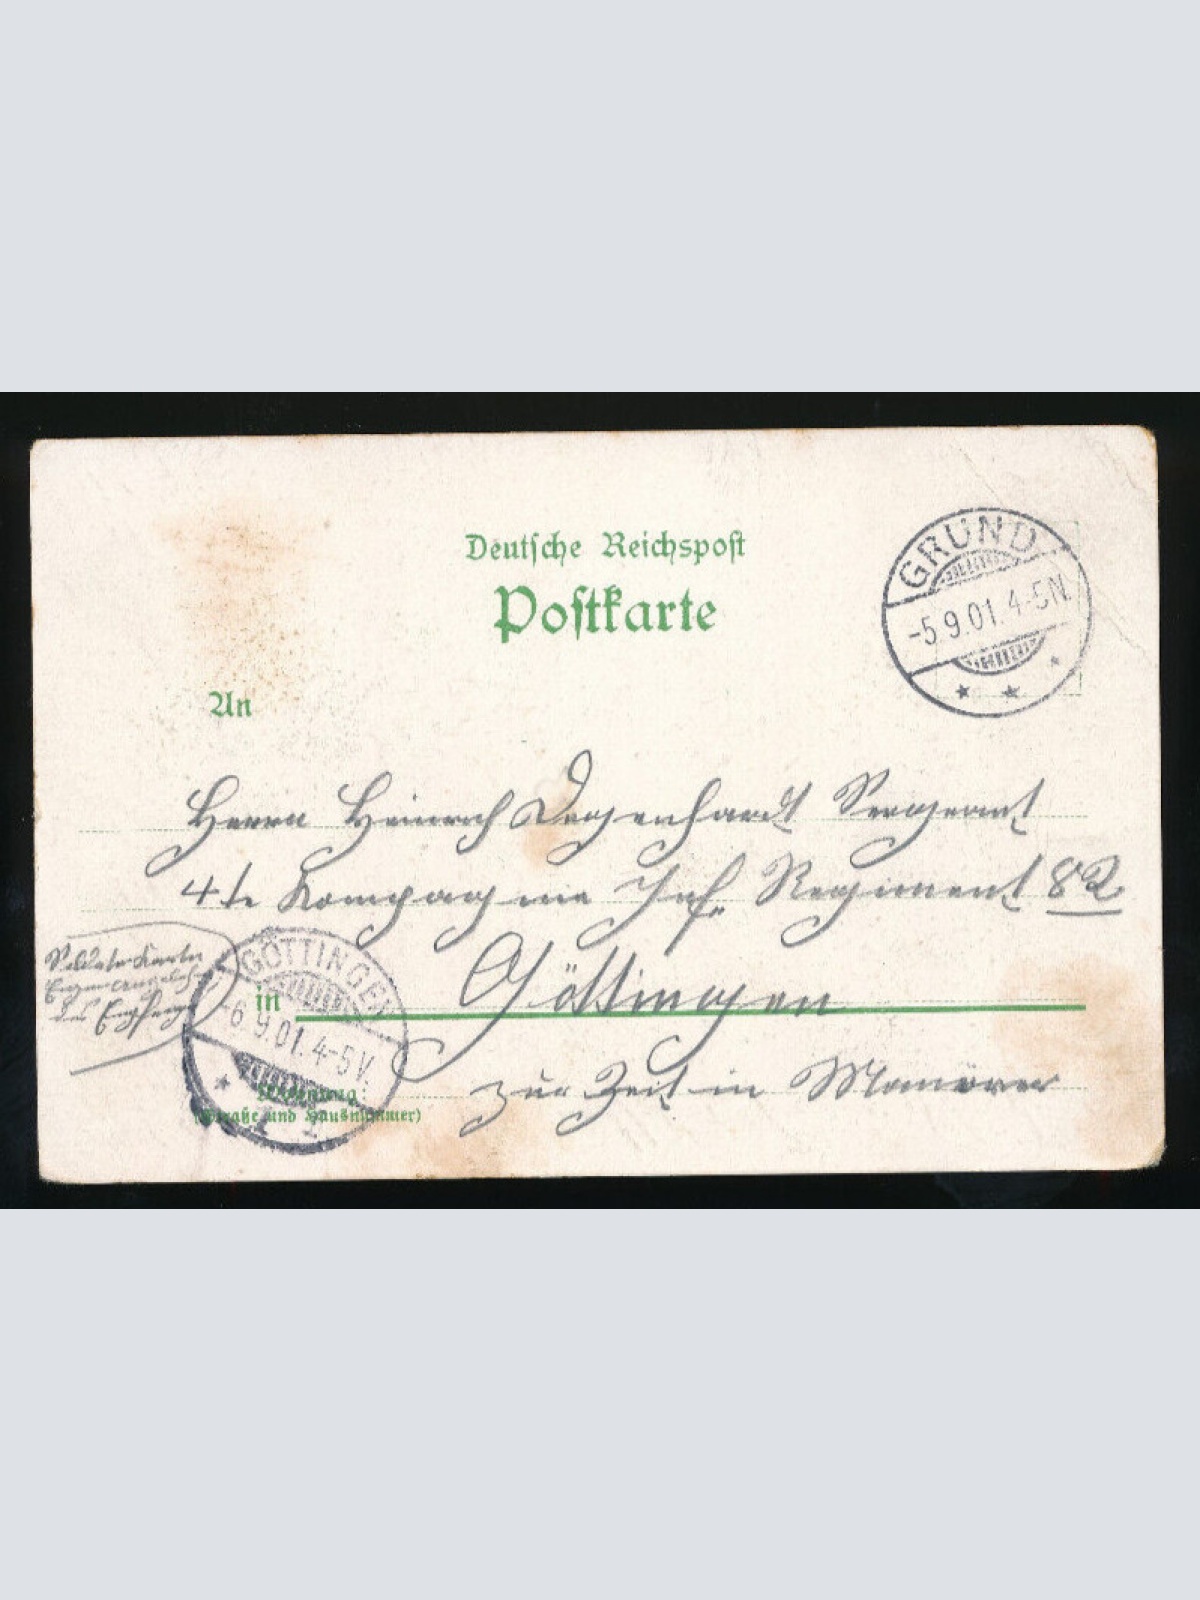 Deutsche Reichspost
Postkarte
GRUND
-5.9.01. 4-5N.
An
Herrn Heinrich Degenhardt Sergeant
4te Kompagnie Inf. Regiment 82
Soldatenkarte
Eigene Angelegenh.
des Empfängers
GÖTTINGEN
-6.9.01. 4-5V.
in Göttingen
zur Zeit in Manöver
Wohnung
(Straße und Hausnummer)